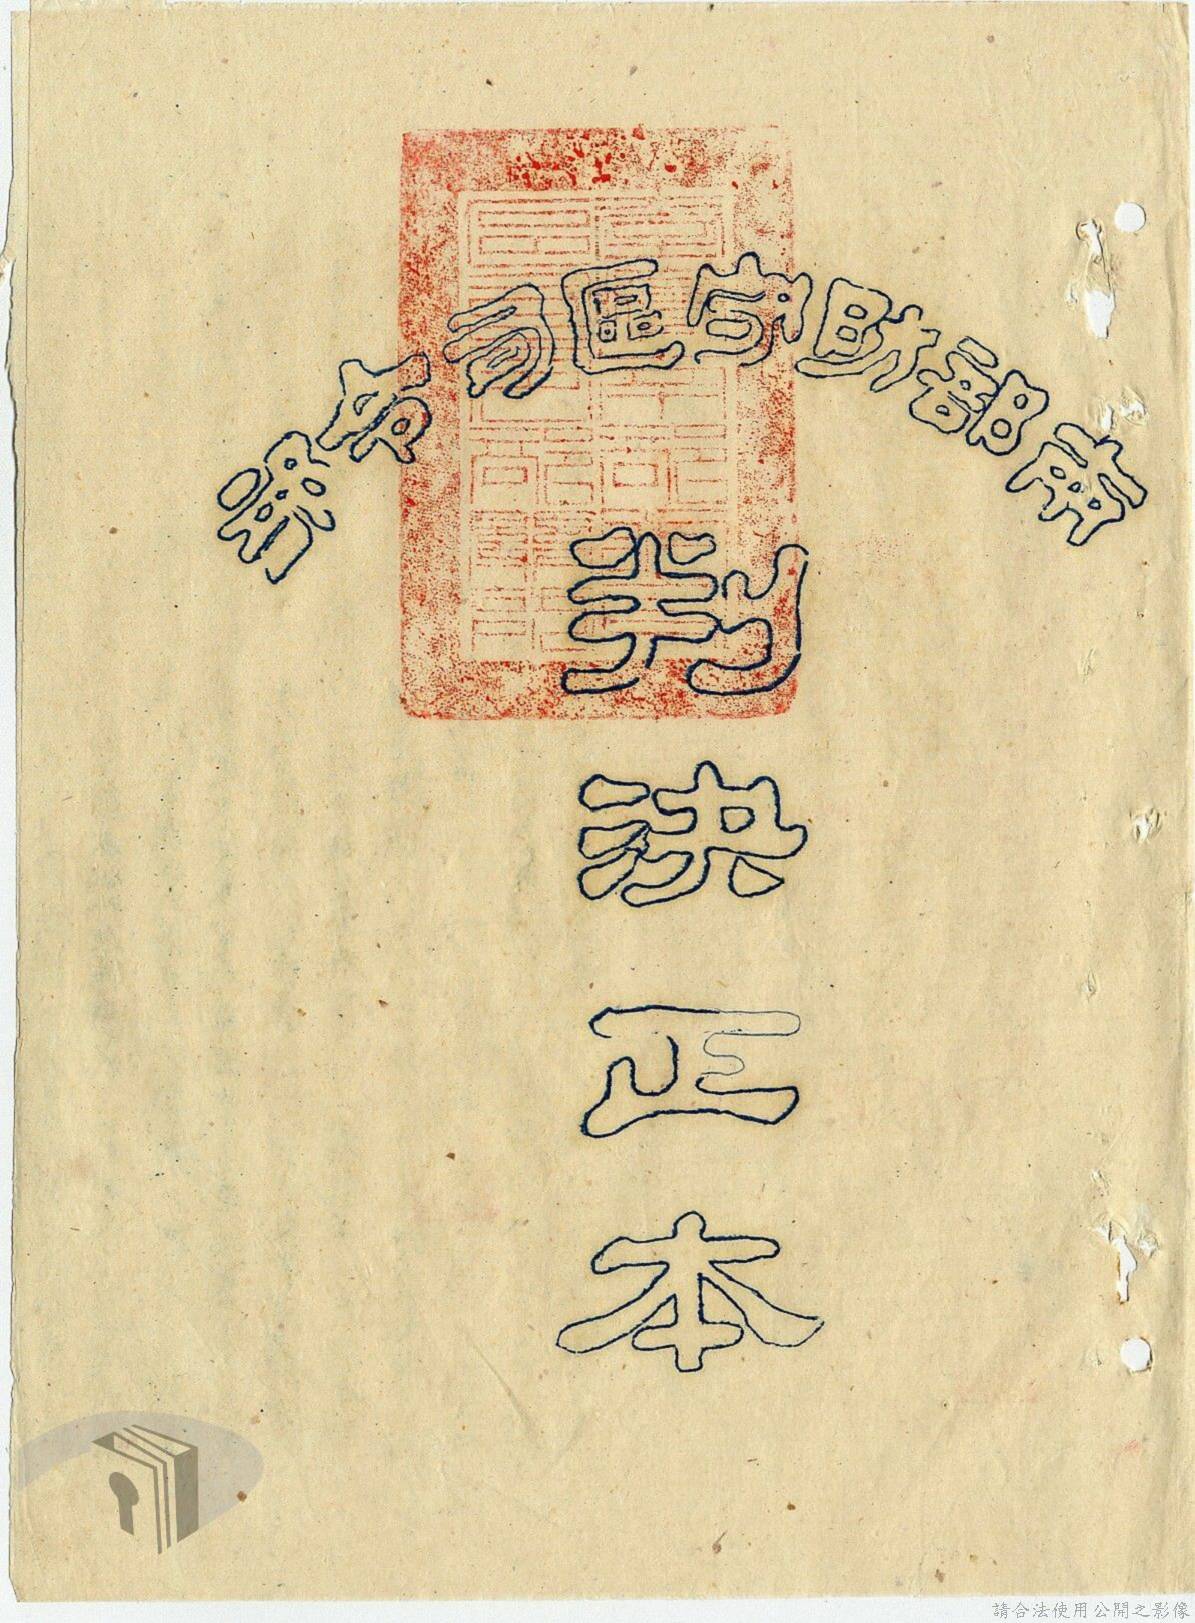 南部防守區司令部
判決正本
請合法使用公開之影像